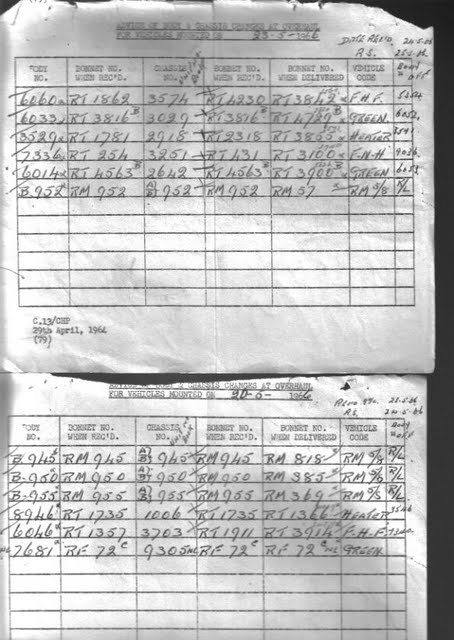 ADVICE OF BODY & CHASSIS CHANGES AT OVERHAUL
FOR VEHICLES MOUNTED ON 23-5-1966
DATE REC'D 24-5-66
R.S. 25-5-66
BODY NO. BONNET NO. WHEN REC'D. CHASSIS NO. BONNET NO. BONNET NO. WHEN DELIVERED VEHICLE CODE Body off
6060 RT 1862 3574 RT 4230 RT 3842 F.H.F.
6033 RT 3816 B 3029 RT 3816 B RT 4729 B GREEN 6052
3529 RT 1781 2918 RT 2318 RT 3855 HEATER
7336 RT 254 3251 RT 431 RT 3100 F-H-H
6014 RT 4563 B 2642 RT 4563 B RT 3900 B GREEN
B-952 RM 952 A/B 952 RM 952 RM 57 RM 5/8 R/L
C.13/CHP
29th April, 1964
(79)
ADVICE OF BODY & CHASSIS CHANGES AT OVERHAUL
FOR VEHICLES MOUNTED ON 20-5-1966
BODY NO. BONNET NO. WHEN REC'D. CHASSIS NO. BONNET NO. BONNET NO. WHEN DELIVERED VEHICLE CODE Body off
B-945 RM 945 A/B 945 RM 945 RM 818 RM 5/8 R/L
B-950 RM 950 A/B 950 RM 950 RM 385 RM 5/8 R/L
B-955 RM 955 A/B 955 RM 955 RM 369 RM 5/8 R/L
8946 RT 1735 1006 RT 1735 RT 1366 HEATER
6046 RT 1357 3703 RT 1911 RT 3914 F-H-F
7681 RF 72 C 9305 RF 72 C RF 72 C GREEN